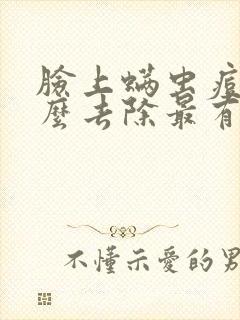 臉上蟎虫痘
麼去除最有
不懂示愛的男